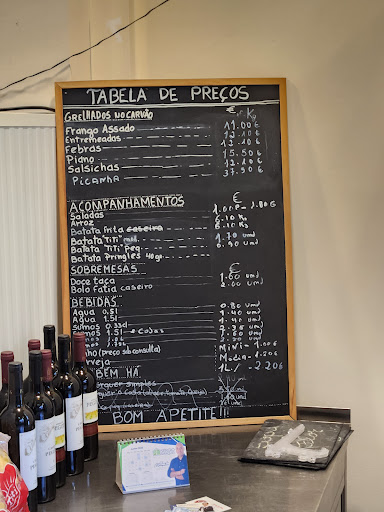 TABELA DE PREÇOS
GRELHADOS NO CARVÃO € Kg
Frango Assado 11.00€
Entremeadas 12.10€
Febras 12.10€
Piano 15.50€
Salsichas 12.10€
PICANHA 37.50€
ACOMPANHAMENTOS €
Saladas 1.00€ - 1.80€
Arroz 6.10 Kg
Batata frita caseira 8.10 Kg
Batata "TITI" méd. 1.70 und
Batata "TiTi" Peq. 0.90 und
Batata Pringles 40g
SOBREMESAS €
Doce taça 1.60 und
Bolo fatia caseiro 2.00 und
BEBIDAS
Agua 0.5l 0.80 und
Agua 1.5l 1.40 und
Sumos 0.33cl
Sumos
(preço sob consulta) Mini - 1.00€
Media - 1.50€
1L / - 2.20€
BEM HÁ
simples
BOM APETITE!!!